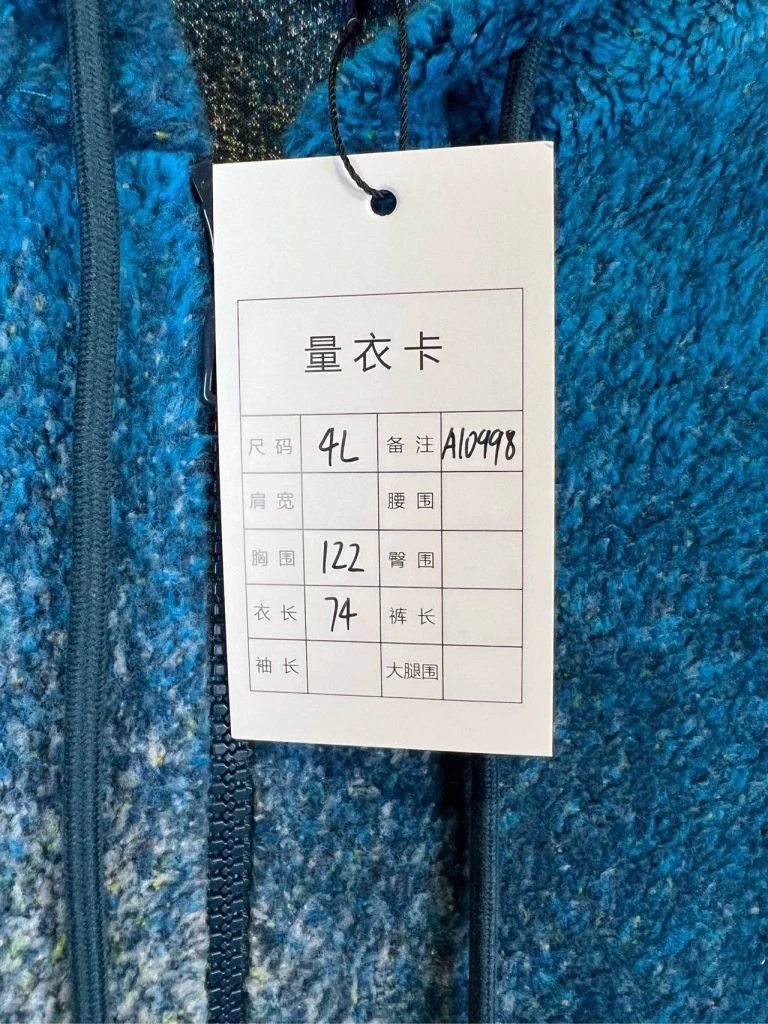 量衣卡
尺码 4L 备注 A10998
肩宽 腰围
胸围 122 臀围
衣长 74 裤长
袖长 大腿围